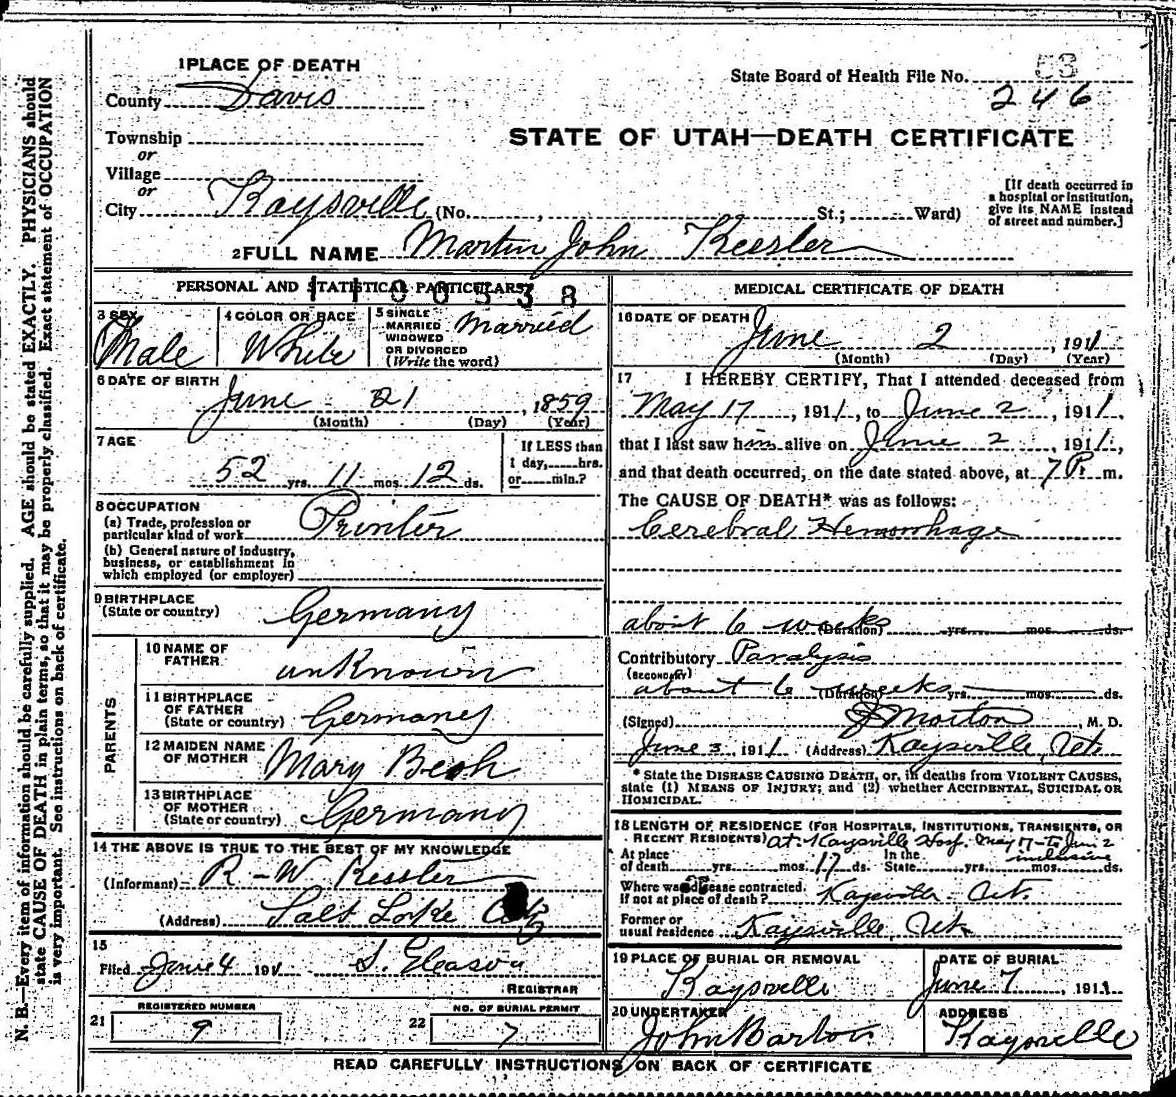 1 PLACE OF DEATH
County Davis
Township
or
Village
or
City Kaysville (No. , St.; Ward)
State Board of Health File No. 53
246
STATE OF UTAH—DEATH CERTIFICATE
[If death occurred in
a hospital or institution,
give its NAME instead
of street and number.]
2 FULL NAME Martin John Keesler
PERSONAL AND STATISTICAL PARTICULARS
1100538
3 SEX
Male
4 COLOR OR RACE
White
5 SINGLE
MARRIED
WIDOWED
OR DIVORCED
(Write the word)
Married
6 DATE OF BIRTH
June 21, 1859
(Month) (Day) (Year)
7 AGE
52 yrs. 11 mos. 12 ds.
If LESS than
1 day, hrs.
or min.?
8 OCCUPATION
(a) Trade, profession or
particular kind of work Printer
(b) General nature of industry,
business, or establishment in
which employed (or employer)
9 BIRTHPLACE
(State or country) Germany
PARENTS
10 NAME OF
FATHER unKnown
11 BIRTHPLACE
OF FATHER
(State or country) Germany
12 MAIDEN NAME
OF MOTHER Mary Besh
13 BIRTHPLACE
OF MOTHER
(State or country) Germany
14 THE ABOVE IS TRUE TO THE BEST OF MY KNOWLEDGE
(Informant) R-W Kessler
(Address) Salt Lake City
15
Filed June 4 191 S. Gleason
REGISTRAR
REGISTERED NUMBER
21 9
NO. OF BURIAL PERMIT
22 7
MEDICAL CERTIFICATE OF DEATH
16 DATE OF DEATH
June 2, 1911
(Month) (Day) (Year)
17 I HEREBY CERTIFY, That I attended deceased from
May 17, 1911, to June 2, 1911,
that I last saw him alive on June 2, 1911,
and that death occurred, on the date stated above, at 7 P. m.
The CAUSE OF DEATH* was as follows:
Cerebral Hemorrhage
about 6 weeks (Duration) yrs. mos. ds.
Contributory Paralysis
(SECONDARY)
about 6 weeks (Duration) yrs. mos. ds.
(Signed) J Morton, M. D.
June 3, 1911 (Address) Kaysville, Utr
* State the DISEASE CAUSING DEATH, or, in deaths from VIOLENT CAUSES,
state (1) MEANS OF INJURY; and (2) whether ACCIDENTAL, SUICIDAL OR
HOMICIDAL.
18 LENGTH OF RESIDENCE (FOR HOSPITALS, INSTITUTIONS, TRANSIENTS, OR
RECENT RESIDENTS) at Kaysville Hosp. May 17-to Jun 2
inclusive
At place
of death yrs. mos. 17 ds.
In the
State yrs. mos. ds.
Where was disease contracted,
If not at place of death? Kaysville - Ut.
Former or
usual residence Kaysville, Utr
19 PLACE OF BURIAL OR REMOVAL
Kaysville
DATE OF BURIAL
June 7, 1911
20 UNDERTAKER
John Barton
ADDRESS
Kaysville
READ CAREFULLY INSTRUCTIONS ON BACK OF CERTIFICATE
N. B.—Every item of information should be carefully supplied. AGE should be stated EXACTLY. PHYSICIANS should
state CAUSE OF DEATH in plain terms, so that it may be properly classified. Exact statement of OCCUPATION
is very important. See instructions on back of certificate.